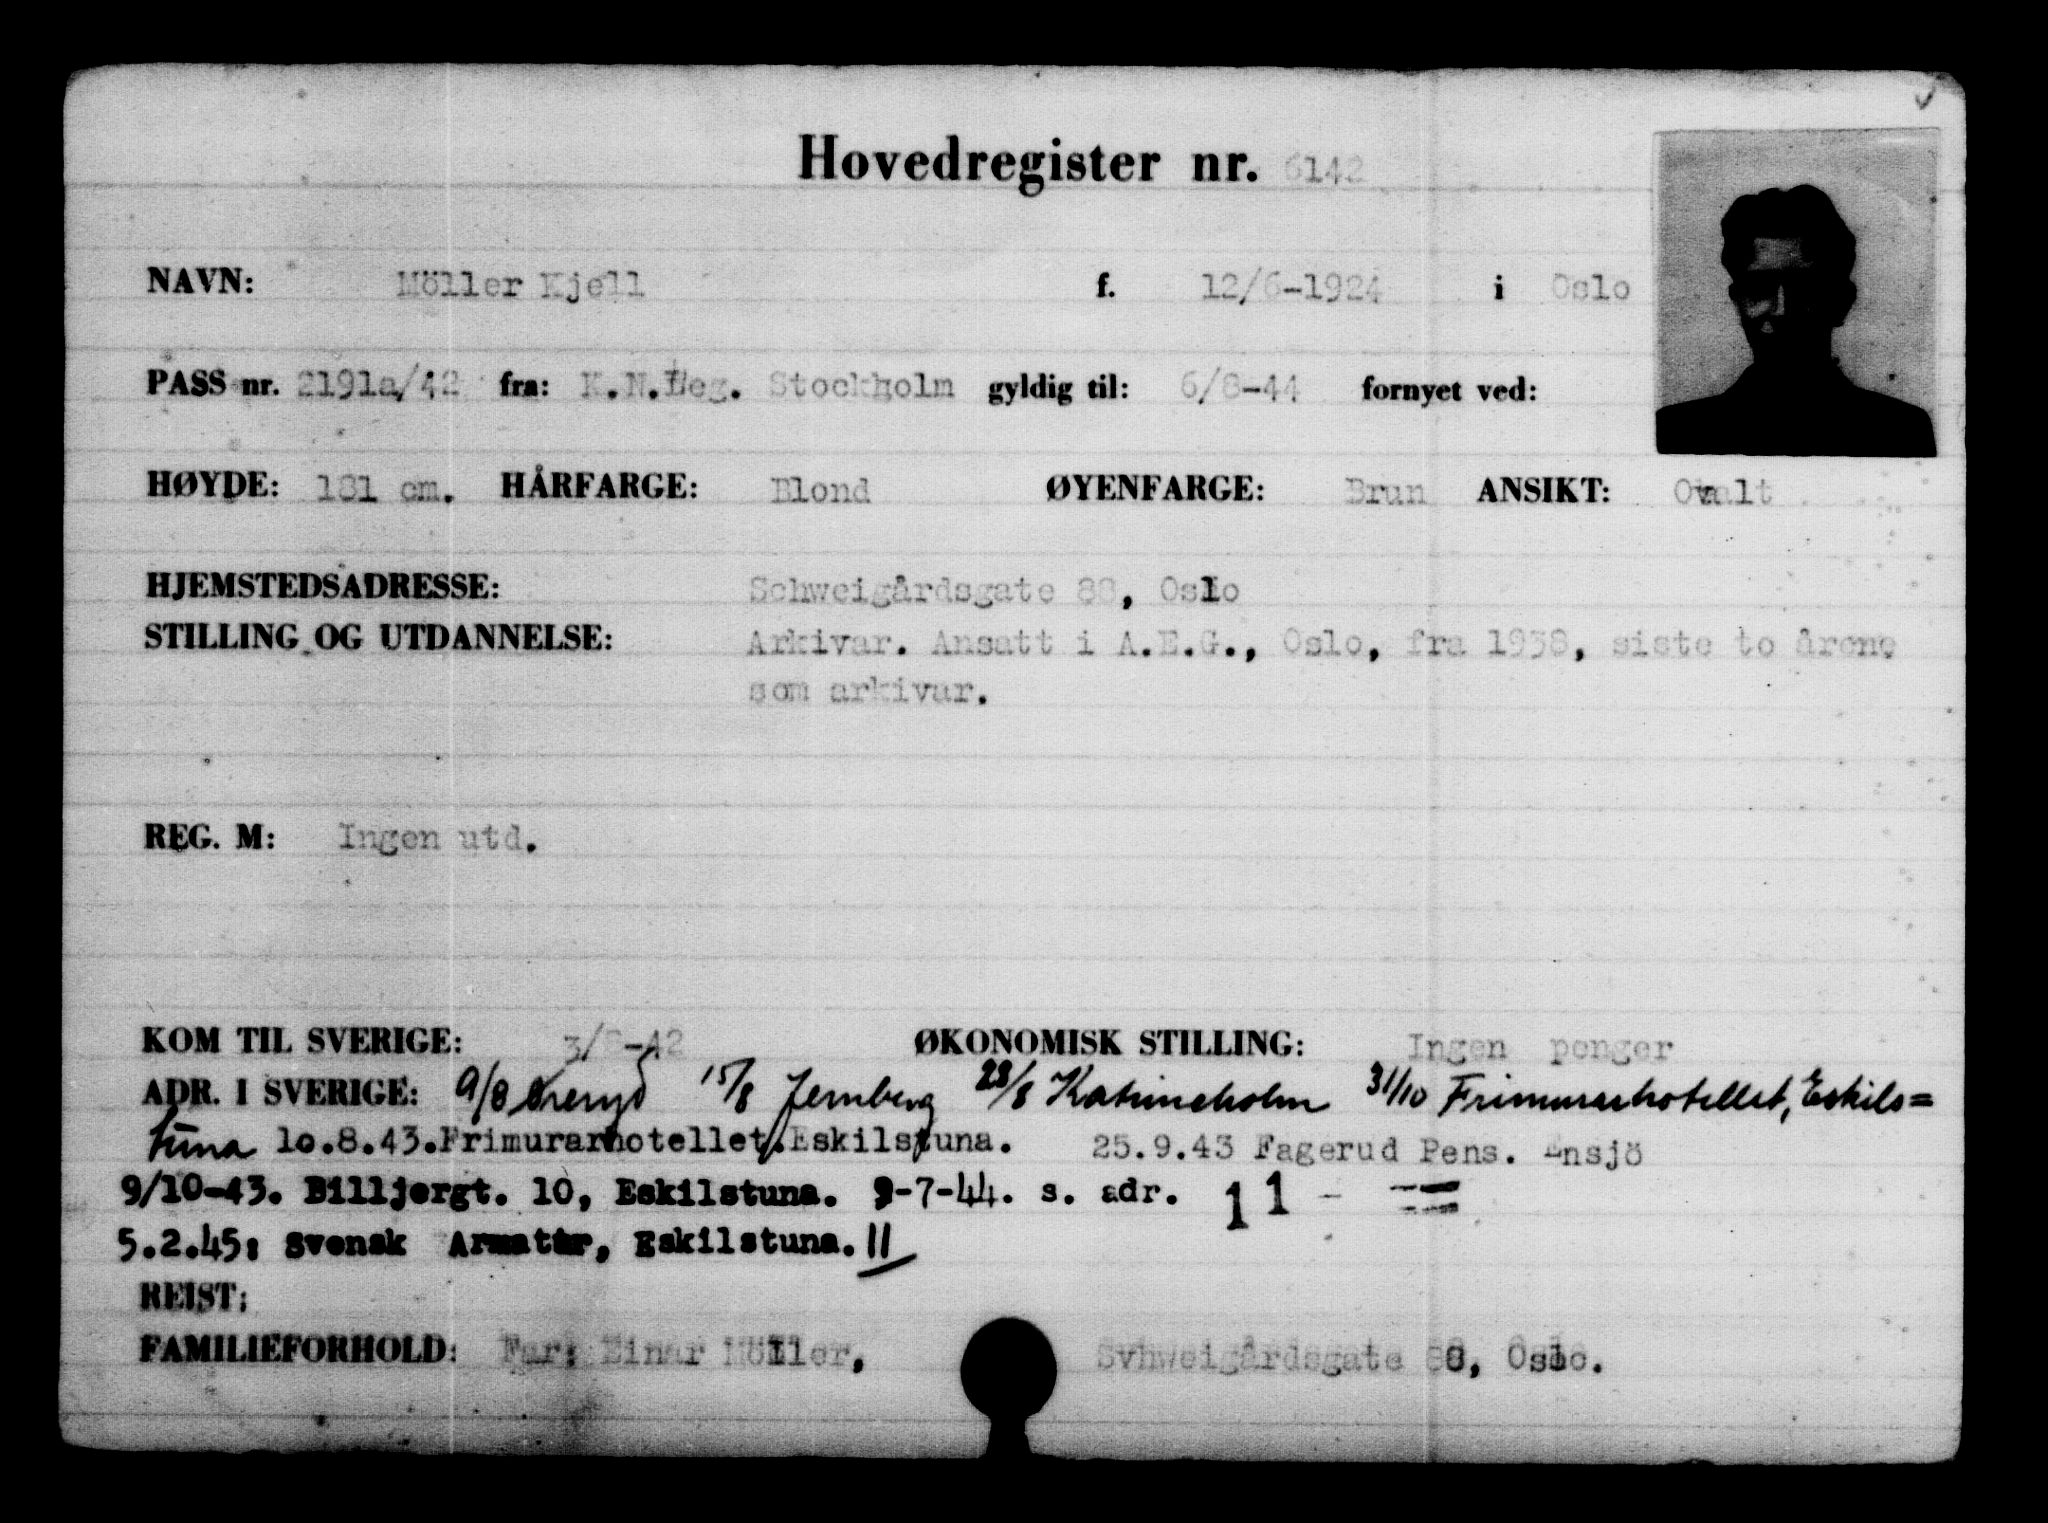 Hovedregister nr. 6142
NAVN: Möller Kjell f. 12/6-1924 i Oslo
PASS nr. 2191a/42 fra: K.N.Leg. Stockholm gyldig til: 6/8-44 fornyet ved:
HØYDE: 181 cm. HÅRFARGE: Blond ØYENFARGE: Brun ANSIKT: Ovalt
HJEMSTEDSADRESSE: Schweigårdsgate 88, Oslo
STILLING OG UTDANNELSE: Arkivar. Ansatt i A.E.G., Oslo, fra 1938, siste to årene
som arkivar.
REG. M: Ingen utd.
KOM TIL SVERIGE: 3/8-42 ØKONOMISK STILLING: Ingen penger
ADR. I SVERIGE: 9/8 Øreryd 15/8 Jernberg 28/8 Katrineholm 31/10 Frimurarhotellet, Eskils=
tuna 10.8.43.Frimurarhotellet.Eskilstuna. 25.9.43 Fagerud Pens. Ensjö
9/10-43. Billjergt. 10, Eskilstuna. 9-7-44. s. adr. 11 - ==
5.2.45: Svensk Armatur, Eskilstuna. 11
REIST:
FAMILIEFORHOLD: Far: Einar Möller, Svhweigårdsgate 88, Oslo.